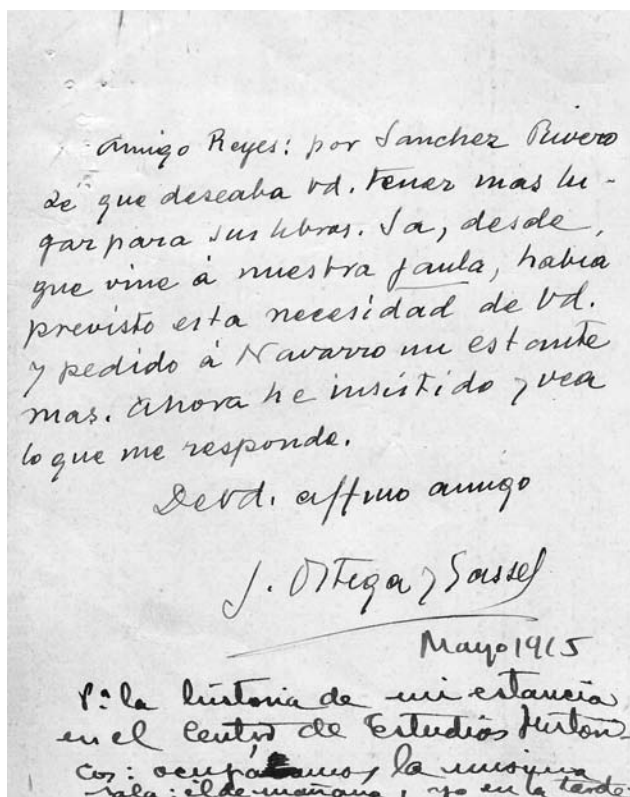 Amigo Reyes: por Sanchez Rivero
sé que deseaba Vd. tener mas lu-
gar para sus libros. Ya, desde
que vine á nuestra jaula, habia
previsto esta necesidad de Vd.
y pedido á Navarro un estante
mas. Ahora he insistido y vea
lo que me responde.
De Vd. affmo amigo
J. Ortega y Gasset
Mayo 1915
Pª la historia de mi estancia
en el Centro de Estudios Históri-
cos: ocupábamos la misma
sala: él de mañana, yo en la tarde